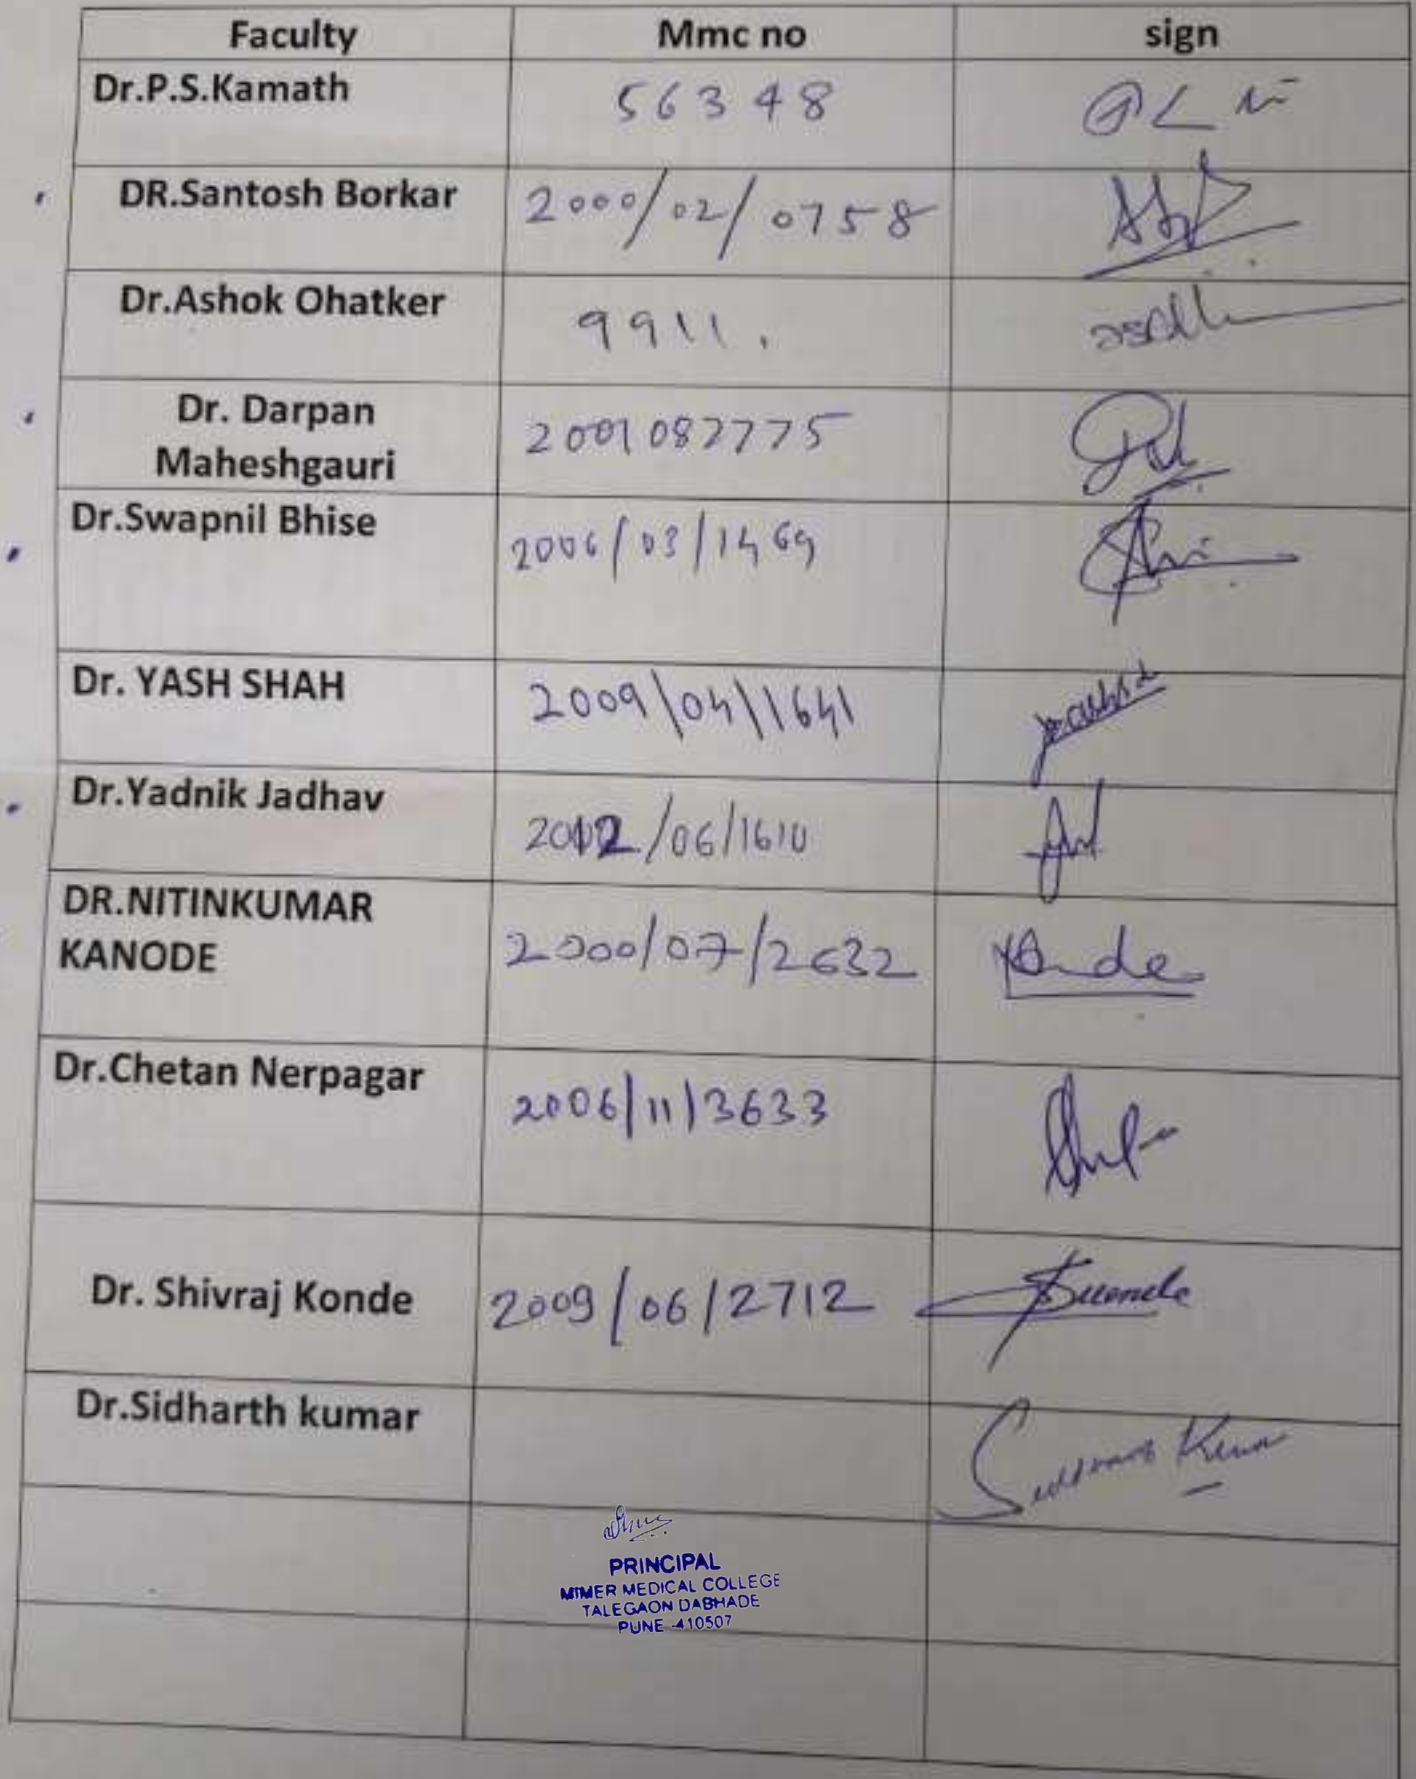 Faculty Mmc no sign
Dr.P.S.Kamath 56348
DR.Santosh Borkar 2000/02/0758
Dr.Ashok Ohatker 9911.
Dr. Darpan
Maheshgauri 2001082775
Dr.Swapnil Bhise 2006/03/1469
Dr. YASH SHAH 2009/04/1641
Dr.Yadnik Jadhav 2012/06/1610
DR.NITINKUMAR
KANODE 2000/07/2632
Dr.Chetan Nerpagar 2006/11/3633
Dr. Shivraj Konde 2009/06/2712
Dr.Sidharth kumar
PRINCIPAL
MIMER MEDICAL COLLEGE
TALEGAON DABHADE
PUNE -410507